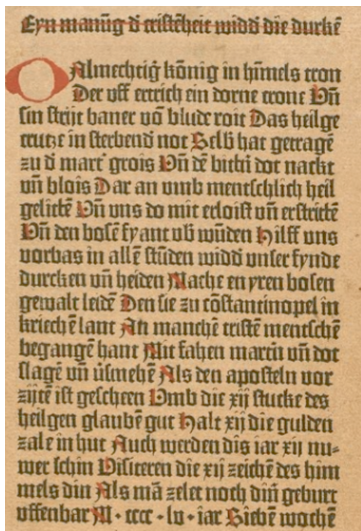 Eyn manũg d̄ cristēheit widd̄ die durkē
O Almechtig kōnig in hīmels tron
Der vff ertrich ein dorne crone Vn̄
sin strijt baner vō blude roit Das heilge
crutze in sterbend not Selb hat getragē
zu d̄ mart grois Vn̄ dē bittī dot nackt
vn̄ blois Dar an vmb mentschlich heil
gelittē Vn̄ vns do mit erloist vn̄ erstrictē
Vn̄ den bosē fyant vb wūden Hilff vns
vorbas in allē stūden widd̄ vnser fynde
durcken vn̄ heiden Mache en yren bosen
gewalt leidē Den sie zu cōstantinopel in
kriechē lant An manchē cristē mentschē
begangē hant Mit fahen martīn vn̄ dot
slagē vn̄ v̄smehē Als den aposteln vor
zijtē ist gescheen Vmb die xij stucke des
heilgen glaubē gut Halt xij die gulden
zale in hut Auch werden dis iar xij nu-
wer schin Visiteren die xij zeichē des him
mels din Als mā zelet noch din̄ geburt
vffenbar M · cccc · lv · iar Siebē wochē